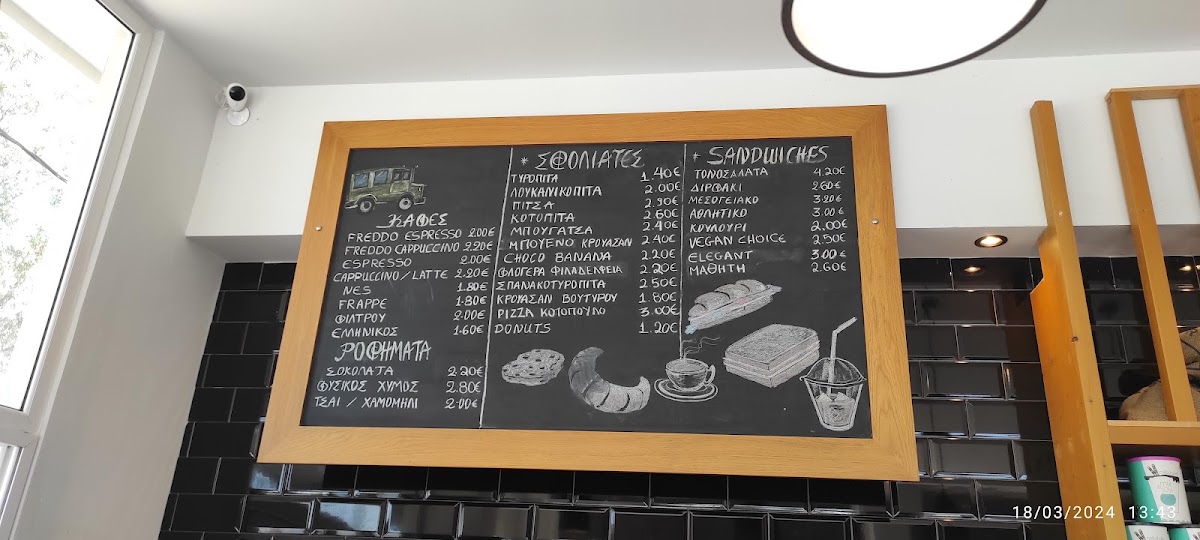 ΚΑΦΕΣ
FREDDO ESPRESSO 2.00€
FREDDO CAPPUCCINO 2.20€
ESPRESSO 2.00€
CAPPUCCINO / LATTE 2.20€
NES 1.80€
FRAPPE 1.80€
ΦΙΛΤΡΟΥ 2.00€
ΕΛΛΗΝΙΚΟΣ 1.60€
ΡΟΦΗΜΑΤΑ
ΣΟΚΟΛΑΤΑ 2.20€
ΦΥΣΙΚΟΣ ΧΥΜΟΣ 2.80€
ΤΣΑΙ / ΧΑΜΟΜΗΛΙ 2.00€
* ΣΦΟΛΙΑΤΕΣ
ΤΥΡΟΠΙΤΑ 1.40€
ΛΟΥΚΑΝΙΚΟΠΙΤΑ 2.00€
ΠΙΤΣΑ 2.90€
ΚΟΤΟΠΙΤΑ 2.60€
ΜΠΟΥΓΑΤΣΑ 2.40€
ΜΠΟΥΕΝΟ ΚΡΟΥΑΣΑΝ 2.40€
CHOCO BANANA 2.20€
ΦΛΟΓΕΡΑ ΦΙΛΑΔΕΛΦΕΙΑ 2.20€
ΣΠΑΝΑΚΟΤΥΡΟΠΙΤΑ 2.50€
ΚΡΟΥΑΣΑΝ ΒΟΥΤΥΡΟΥ 1.80€
PIZZA ΚΟΤΟΠΟΥΛΟ 3.00€
DONUTS 1.20€
* SANDWICHES
ΤΟΝΟΣΑΛΑΤΑ 4.20€
ΔΙΡΒΑΚΙ 2.60€
ΜΕΣΟΓΕΙΑΚΟ 3.20€
ΑΘΛΗΤΙΚΟ 3.00€
ΚΟΥΛΟΥΡΙ 2.00€
VEGAN CHOICE 2.50€
ELEGANT 3.00€
ΜΑΘΗΤΗ 2.60€
18/03/2024 13:43